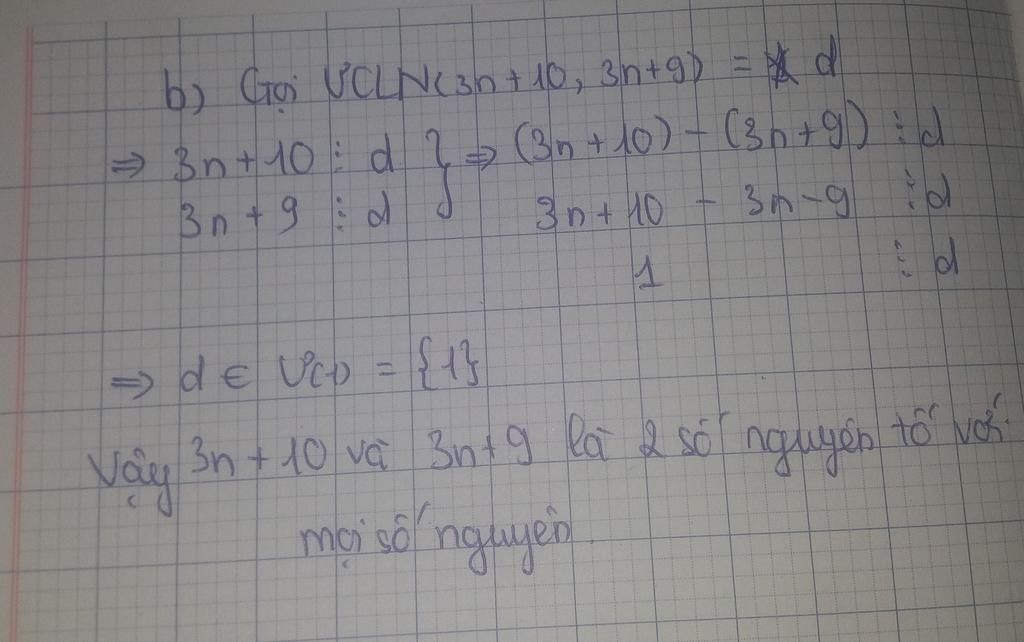 b) Gọi ƯCLN(3n+10, 3n+9) = d
⇒ 3n+10 ⋮ d } ⇒ (3n+10) - (3n+9) ⋮ d
3n+9 ⋮ d 3n+10 - 3n-9 ⋮ d
1 ⋮ d
⇒ d ∈ Ư(1) = {1}
Vậy 3n+10 và 3n+9 là 2 số nguyên tố với
mọi số nguyên